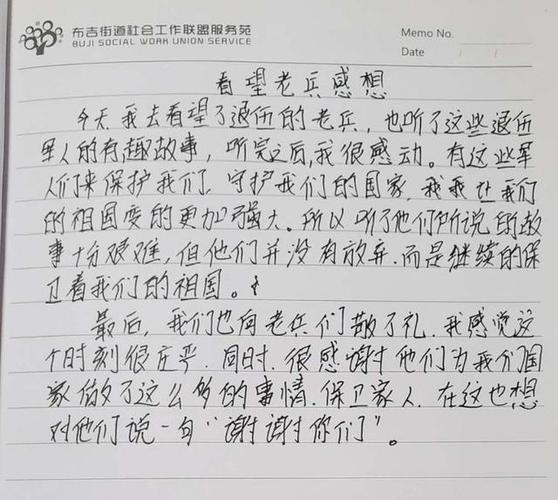 布吉街道社会工作联盟服务苑
BUJI SOCIAL WORK UNION SERVICE
Memo No.
Date / /
看望老兵感想
今天我去看望了退伍的老兵，也听了这些退伍
军人的有趣故事，听完之后,我很感动。有这些军
人们来保护我们,守护我们的国家,我我让我们
的祖国变的更加强大。所以听了他们所说的故
事十分艰难,但他们并没有放弃,而是继续的保
卫着我们的祖国。
最后,我们也向老兵们敬了礼,我感觉这
个时刻很庄严,同时,很感谢他们为我们国
家做了这么多的事情,保卫家人,在这也想
对他们说一句“谢谢你们”。